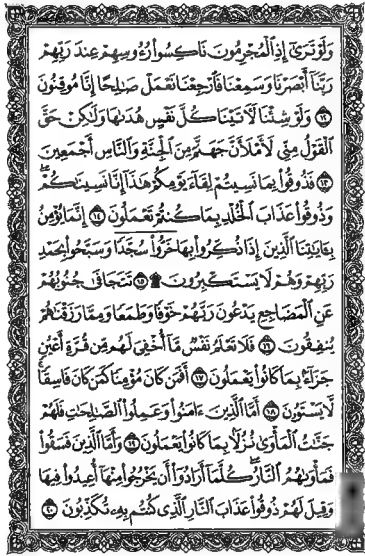 وَلَوْ تَرَىٰٓ إِذِ ٱلْمُجْرِمُونَ نَاكِسُوا۟ رُءُوسِهِمْ عِندَ رَبِّهِمْ
رَبَّنَآ أَبْصَرْنَا وَسَمِعْنَا فَٱرْجِعْنَا نَعْمَلْ صَٰلِحًا إِنَّا مُوقِنُونَ
١٢ وَلَوْ شِئْنَا لَءَاتَيْنَا كُلَّ نَفْسٍ هُدَىٰهَا وَلَٰكِنْ حَقَّ
ٱلْقَوْلُ مِنِّى لَأَمْلَأَنَّ جَهَنَّمَ مِنَ ٱلْجِنَّةِ وَٱلنَّاسِ أَجْمَعِينَ
١٣ فَذُوقُوا۟ بِمَا نَسِيتُمْ لِقَآءَ يَوْمِكُمْ هَٰذَآ إِنَّا نَسِينَٰكُمْ ۖ
وَذُوقُوا۟ عَذَابَ ٱلْخُلْدِ بِمَا كُنتُمْ تَعْمَلُونَ ١٤ إِنَّمَا يُؤْمِنُ
بِـَٔايَٰتِنَا ٱلَّذِينَ إِذَا ذُكِّرُوا۟ بِهَا خَرُّوا۟ سُجَّدًا وَسَبَّحُوا۟ بِحَمْدِ
رَبِّهِمْ وَهُمْ لَا يَسْتَكْبِرُونَ ۩ ١٥ تَتَجَافَىٰ جُنُوبُهُمْ
عَنِ ٱلْمَضَاجِعِ يَدْعُونَ رَبَّهُمْ خَوْفًا وَطَمَعًا وَمِمَّا رَزَقْنَٰهُمْ
يُنفِقُونَ ١٦ فَلَا تَعْلَمُ نَفْسٌ مَّآ أُخْفِىَ لَهُم مِّن قُرَّةِ أَعْيُنٍ
جَزَآءًۢ بِمَا كَانُوا۟ يَعْمَلُونَ ١٧ أَفَمَن كَانَ مُؤْمِنًا كَمَن كَانَ فَاسِقًا ۚ
لَّا يَسْتَوُۥنَ ١٨ أَمَّا ٱلَّذِينَ ءَامَنُوا۟ وَعَمِلُوا۟ ٱلصَّٰلِحَٰتِ فَلَهُمْ
جَنَّٰتُ ٱلْمَأْوَىٰ نُزُلًۢا بِمَا كَانُوا۟ يَعْمَلُونَ ١٩ وَأَمَّا ٱلَّذِينَ فَسَقُوا۟
فَمَأْوَىٰهُمُ ٱلنَّارُ ۖ كُلَّمَآ أَرَادُوٓا۟ أَن يَخْرُجُوا۟ مِنْهَآ أُعِيدُوا۟ فِيهَا
وَقِيلَ لَهُمْ ذُوقُوا۟ عَذَابَ ٱلنَّارِ ٱلَّذِى كُنتُم بِهِۦ تُكَذِّبُونَ ٢٠